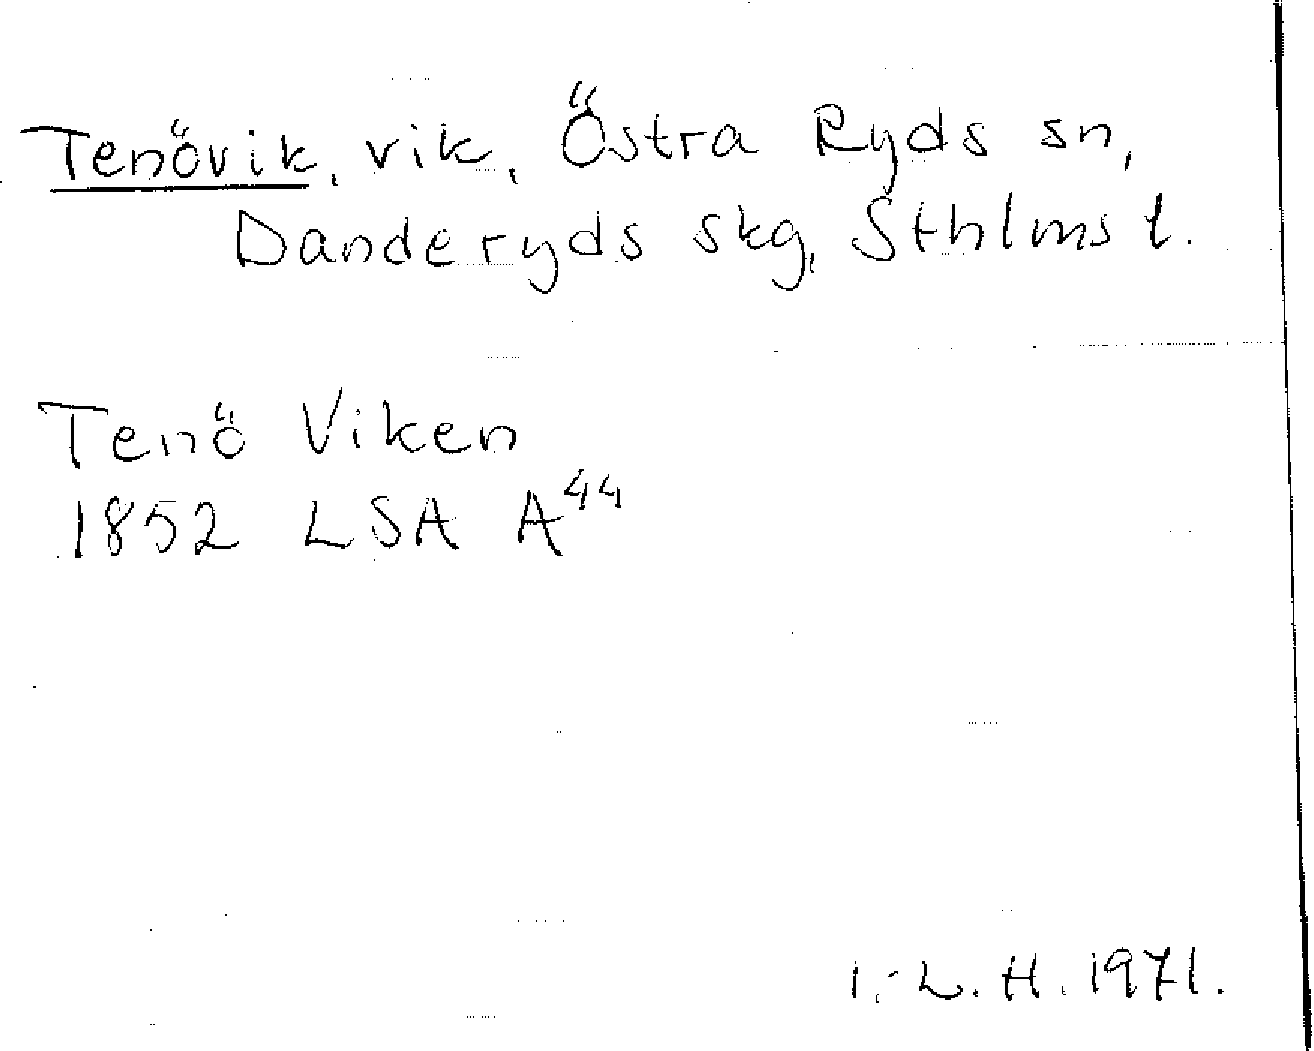 Tenövik, vik, Östra Ryds sn,
Danderyds skg, Sthlms l.
Tenö Viken
1852 LSA A44
I.-L. H. 1971.